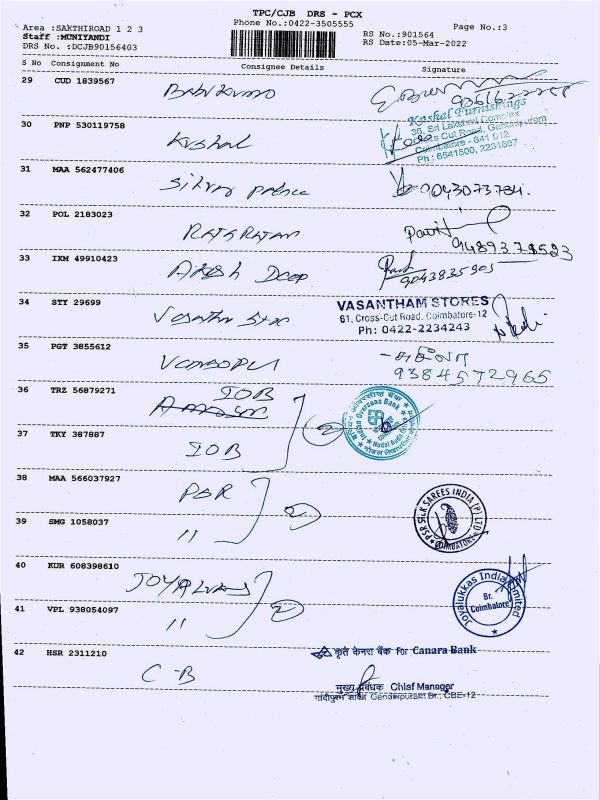 TPC/CJB DRS - PCX
Area :SAKTHIROAD 1 2 3
Phone No.:0422-3505555
Page No.:3
Staff :MUNIYANDI
RS No.:901564
DRS No. :DCJB90156403
RS Date:05-Mar-2022
S No Consignment No Consignee Details Signature
29 CUD 1839567
30 PNP 530119758 Krishal
Krishal Furnishings
36, Sri Lakshmi Complex
Cross Cut Road, Gandhipuram
Coimbatore - 641 012.
Ph : 6541500, 2231667
31 MAA 562477406 9043073784.
32 POL 2183023 RAJARATAN
33 IXM 49910423 Akash Deep
9043825905
34 STY 29699
VASANTHAM STORES
61, Cross-Cut Road, Coimbatore-12
Ph: 0422-2234243
35 PGT 3855612
9384572965
36 TRZ 56879271 IOB
Indian Overseas Bank
37 TKY 387887 IOB
38 MAA 566037927 PSR
PSR SILK SAREES INDIA (P) LTD
COIMBATORE
39 SMG 1058037 "
40 KUR 608398610
Joyalukkas India Limited
Br.
Coimbatore
41 VPL 938054097 "
42 HSR 2311210 C-B
कृते केनरा बैंक For Canara Bank
मुख्य प्रबंधक Chief Manager
गांधीपुरम शाखा Gandhipuram Br., CBE-12